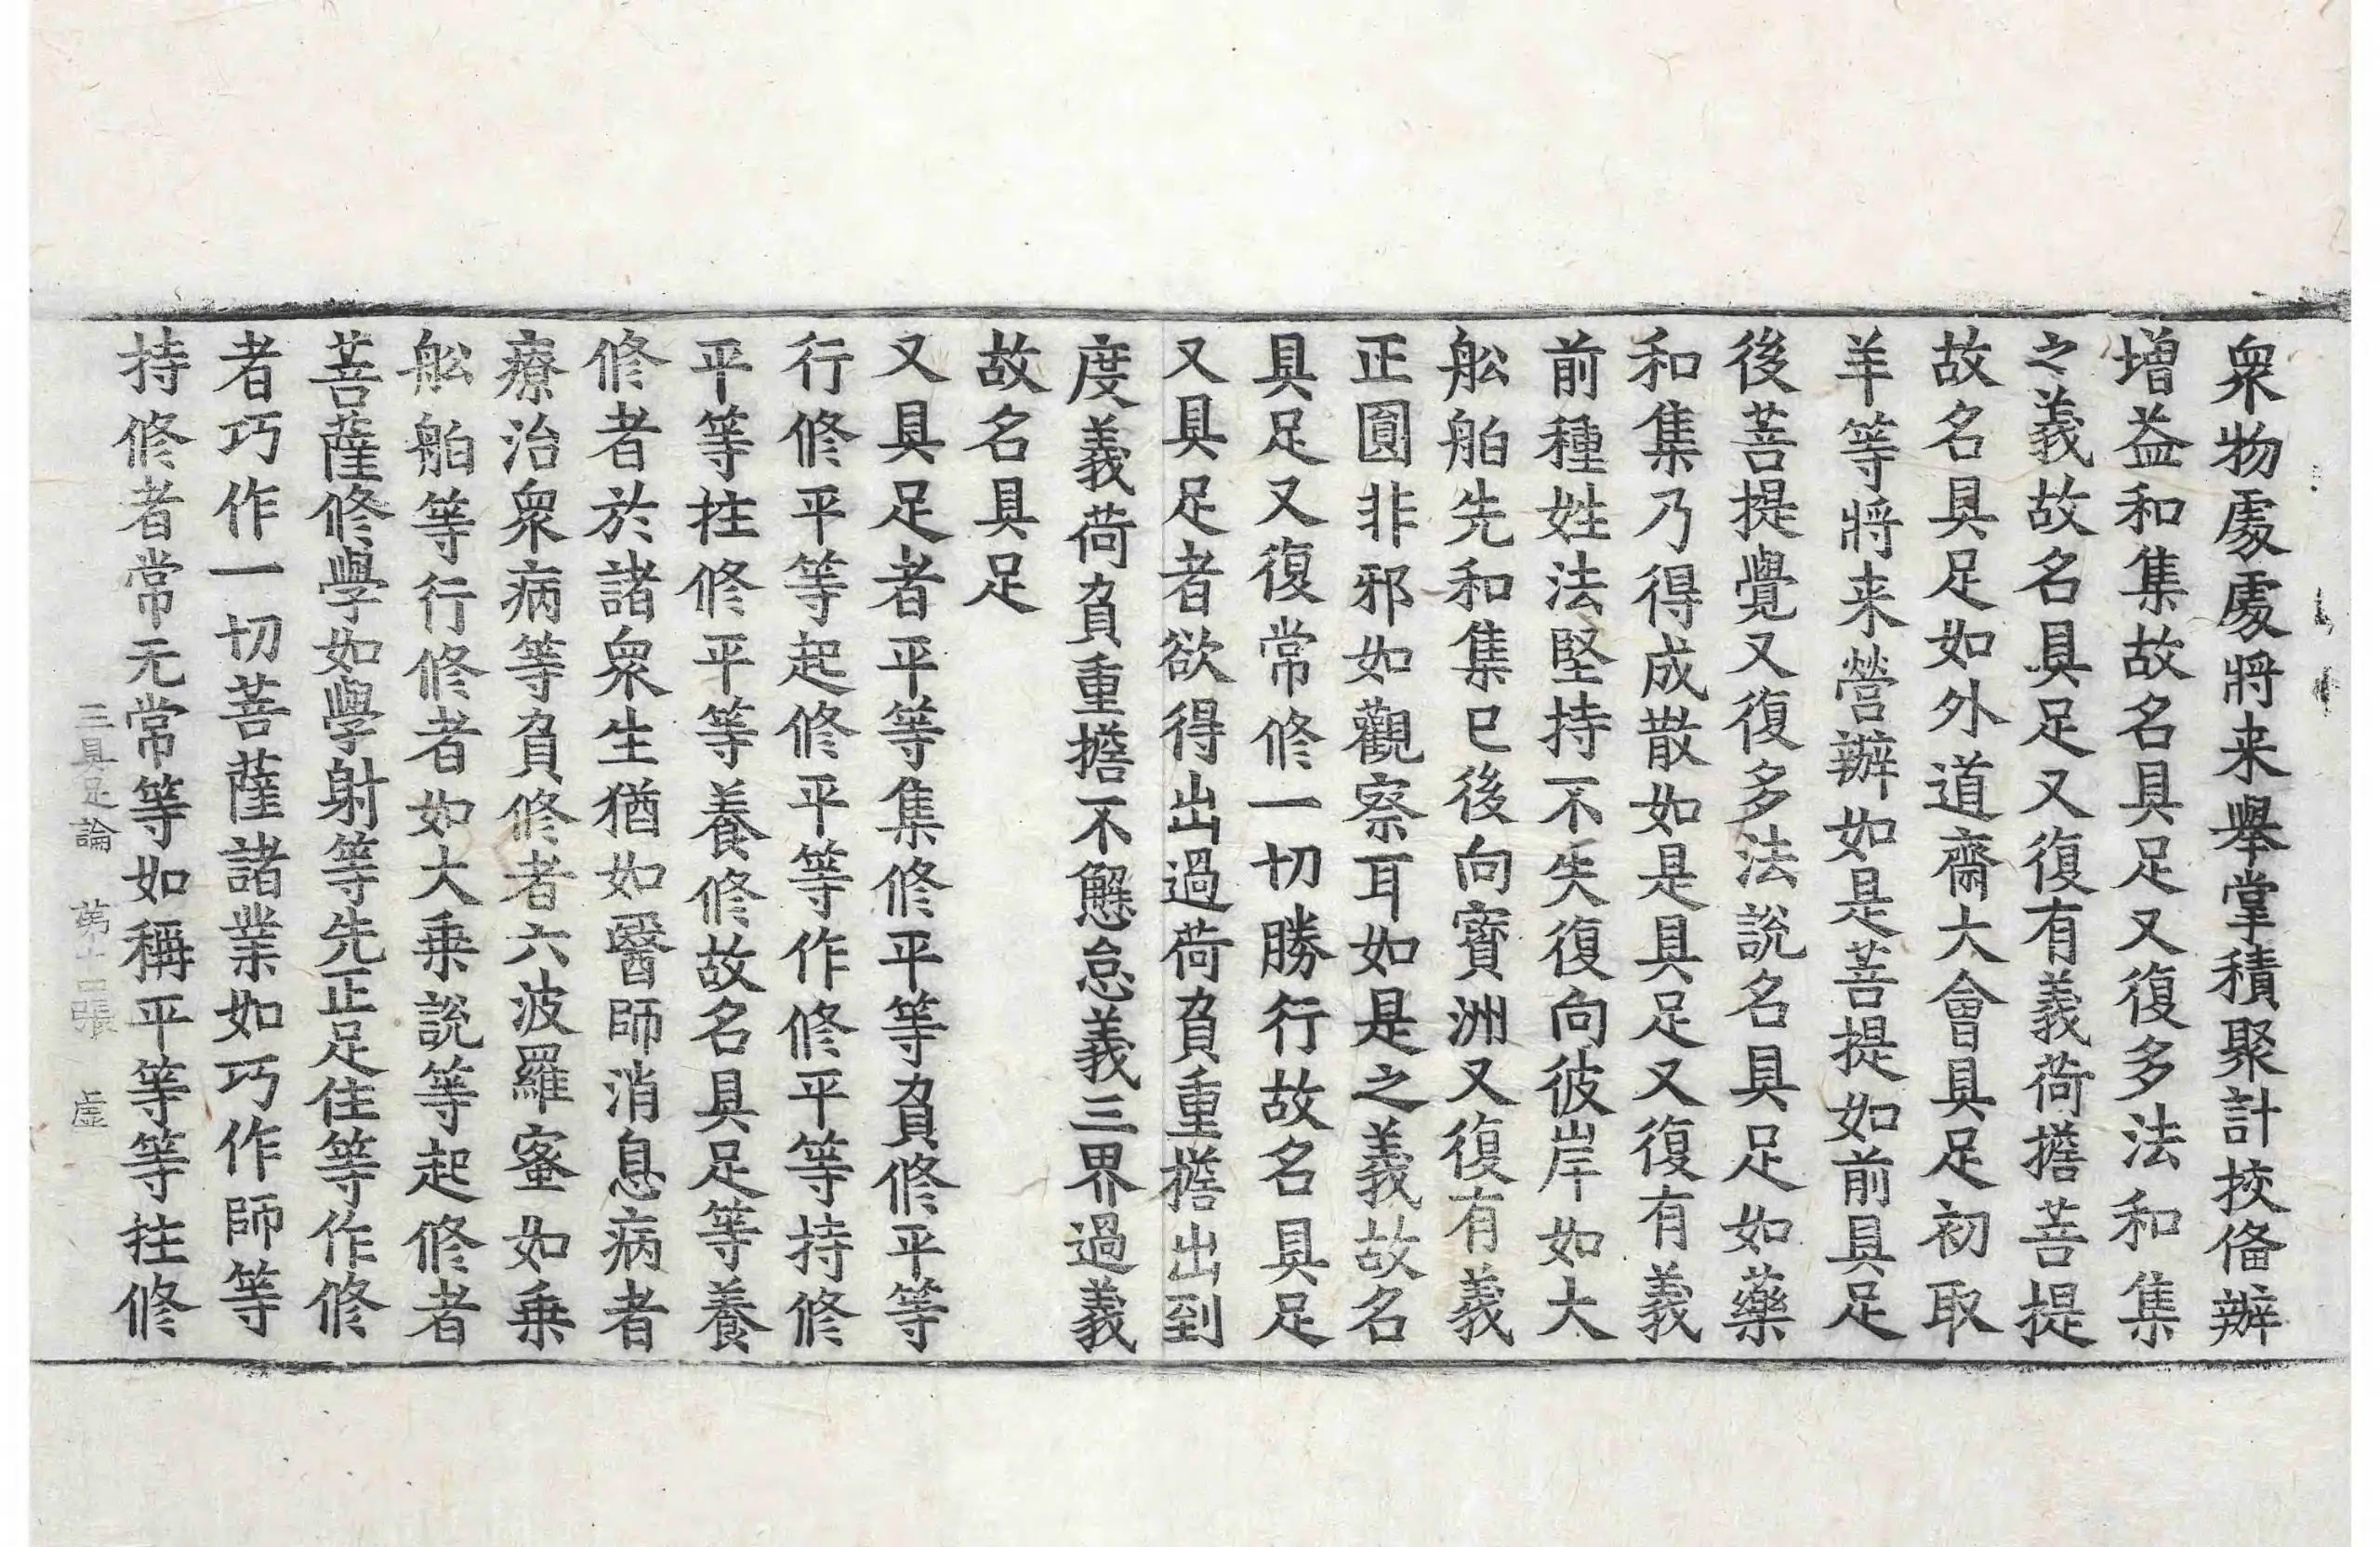 衆物處處將来舉掌積聚計挍俻辦
増益和集故名具足又復多法和集
之義故名具足又復有義荷擔菩提
故名具足如外道齋大會具足初取
羊等將来營辦如是菩提如前具足
後菩提覺又復多法說名具足如藥
和集乃得成散如是具足又復有義
前種姓法堅持不失復向彼岸如大
舩舶先和集已後向寳洲又復有義
正圓非邪如觀察耳如是之義故名
具足又復常修一切勝行故名具足
又具足者欲得出過荷負重擔出到
度義荷負重擔不懈怠義三界過義
故名具足
又具足者平等集修平等負修平等
行修平等起修平等作修平等持修
平等拄修平等養修故名具足等養
修者於諸衆生猶如醫師消息病者
療治衆病等負修者六波羅蜜如乗
舩舶等行修者如大乗說等起修者
菩薩修學如學射等先正足住等作修
者巧作一切菩薩諸業如巧作師等
持修者常无常等如稱平等等拄修
三具足論 第十一張 虛